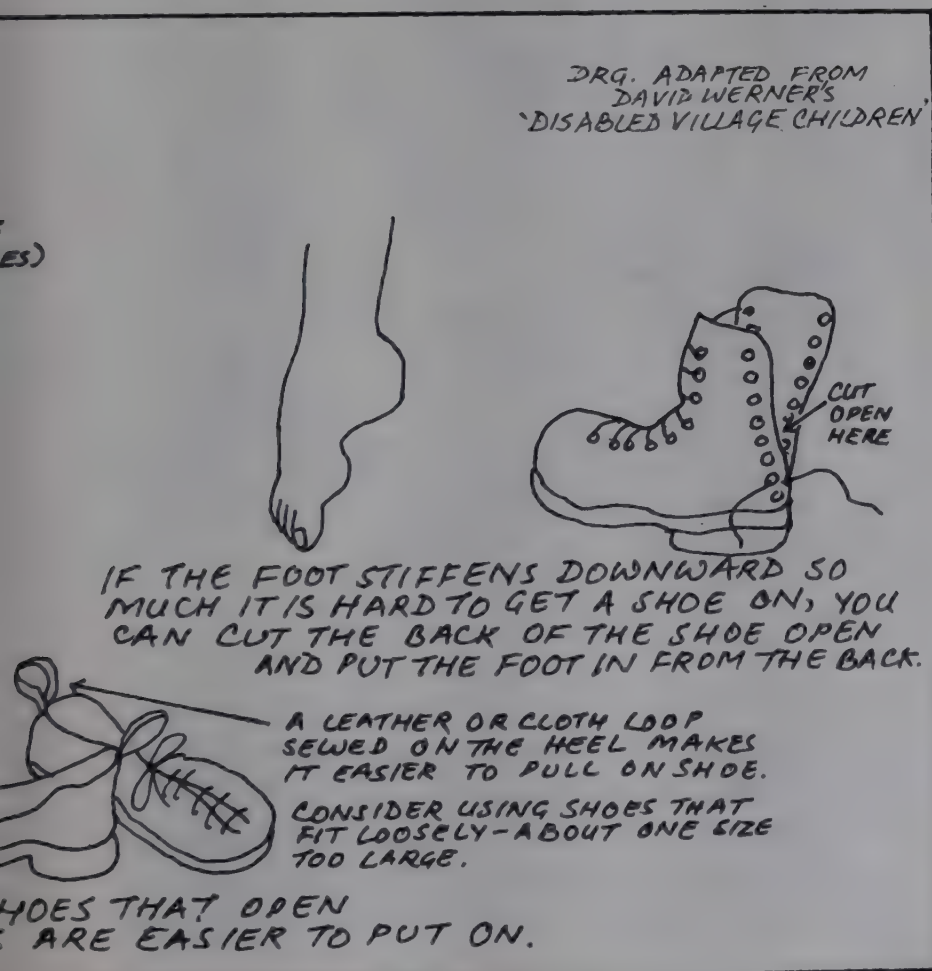 DRG. ADAPTED FROM
DAVID WERNER'S
'DISABLED VILLAGE CHILDREN'
ES)
CUT
OPEN
HERE
IF THE FOOT STIFFENS DOWNWARD SO
MUCH IT IS HARD TO GET A SHOE ON, YOU
CAN CUT THE BACK OF THE SHOE OPEN
AND PUT THE FOOT IN FROM THE BACK.
A LEATHER OR CLOTH LOOP
SEWED ON THE HEEL MAKES
IT EASIER TO PULL ON SHOE.
CONSIDER USING SHOES THAT
FIT LOOSELY-ABOUT ONE SIZE
TOO LARGE.
HOES THAT OPEN
ARE EASIER TO PUT ON.